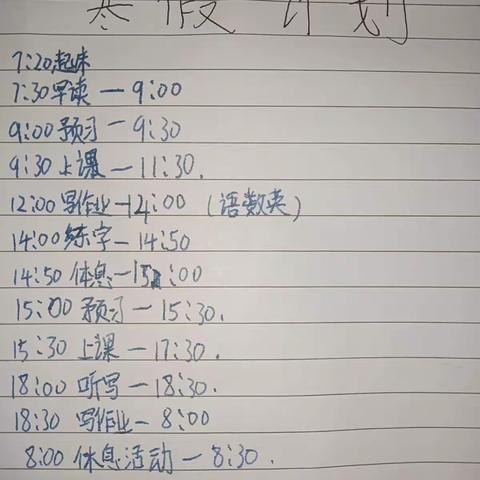 寒假计划
7:20起床
7:30早读—9:00
9:00预习—9:30
9:30上课—11:30.
12:00写作业—14:00（语数英）
14:00练字—14:50
14:50休息—15:00
15:00预习—15:30.
15:30上课—17:30.
18:00听写—18:30.
18:30写作业—8:00
8:00休息活动—8:30.